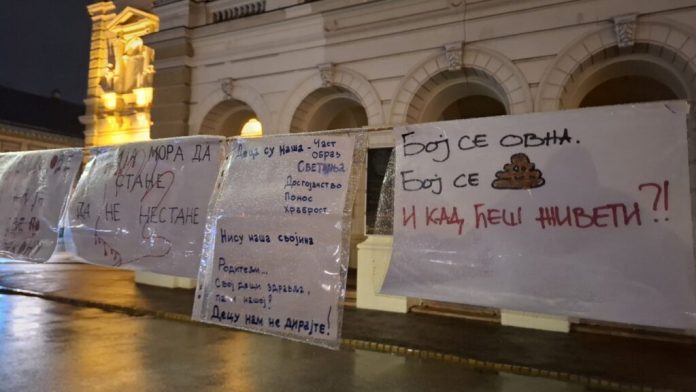 МОРА ДА
СТАНЕ
ДА НЕ НЕСТАНЕ
Деца су наша - Част
образ
Светиња
Достојанство
Понос
Храброст
Нису наша својина
Родитељи...
Свој деци здравља,
па и нашој?
Децу нам не дирајте!
БОЈ СЕ ОВНА.
БОЈ СЕ
И КАД ЋЕШ ЖИВЕТИ?!